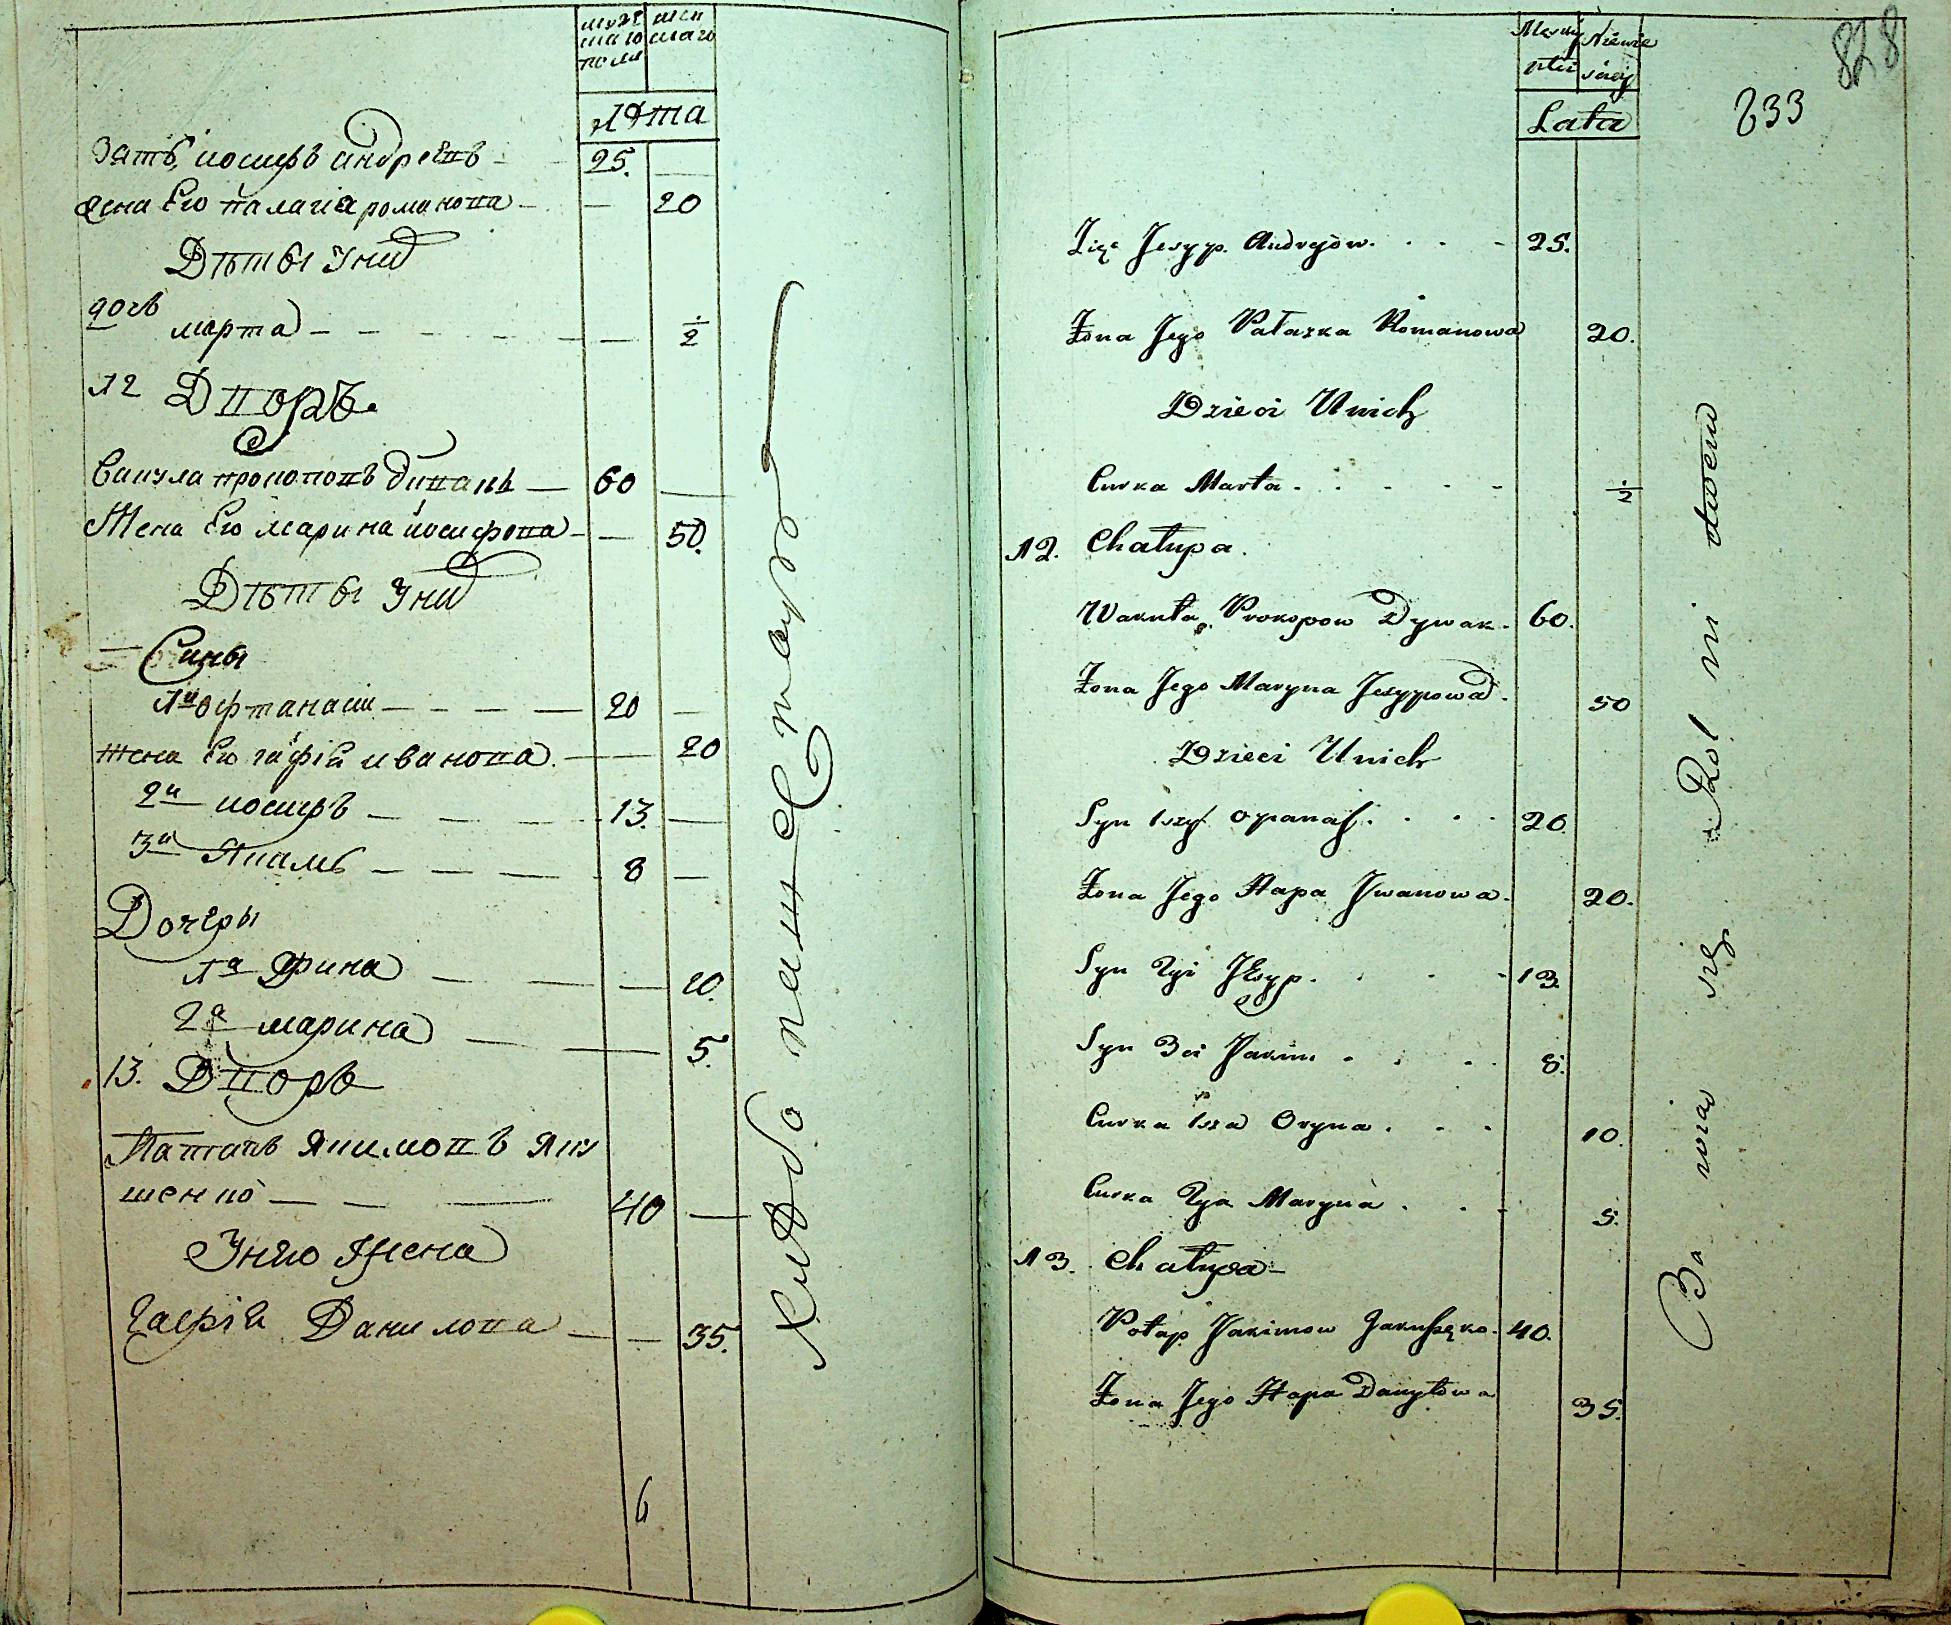 муже
шаго
пола
жен
шаго
Лѣта
Зать иосифъ андреевъ 25.
жена Его палагіа романова 20
Дѣты У нихъ
дочь
марта 1/2
12 Дворъ
Вакула прокоповъ дивакъ 60
Жена Его марина иосифова 50.
Дѣты У нихъ
Сины
1й офтанасіи 20
жена Его гафіа иванова 20
2й иосифъ 13.
3й Якимъ 8
Дочеры
1а Орина 10.
2а марина 5.
13. Дворъ
Патапъ Якимовъ Яку
шенко 40
У него Жена
Гафіа Данилова 35.
6
Хлѣбопашествуютъ
828
833
Męzkiej
płci
Niewie
sciej
Lata
Zięc Jesyp Andrejow 25.
Żona Jego Pałaszka Romanowa 20.
Dzieci U nich
Curka Marta 1/2
12. Chałupa.
Wakuła Prokopow Dywak 60.
Żona Jego Maryna Jesypowa 50
Dzieci U nich
Syn 1szy Opanas 20
Żona Jego Hapa Jwanowa 20.
Syn 2gi Jesyp 13.
Syn 3ci Jakim 8.
Curka 1sza Oryna 10.
Curka 2ga Maryna 5.
13. Chałupa
Potap Jakimow Jakuszęko 40.
Żona Jego Hapa Danyłowa 35.
Ba wią się Rol ni ctwem